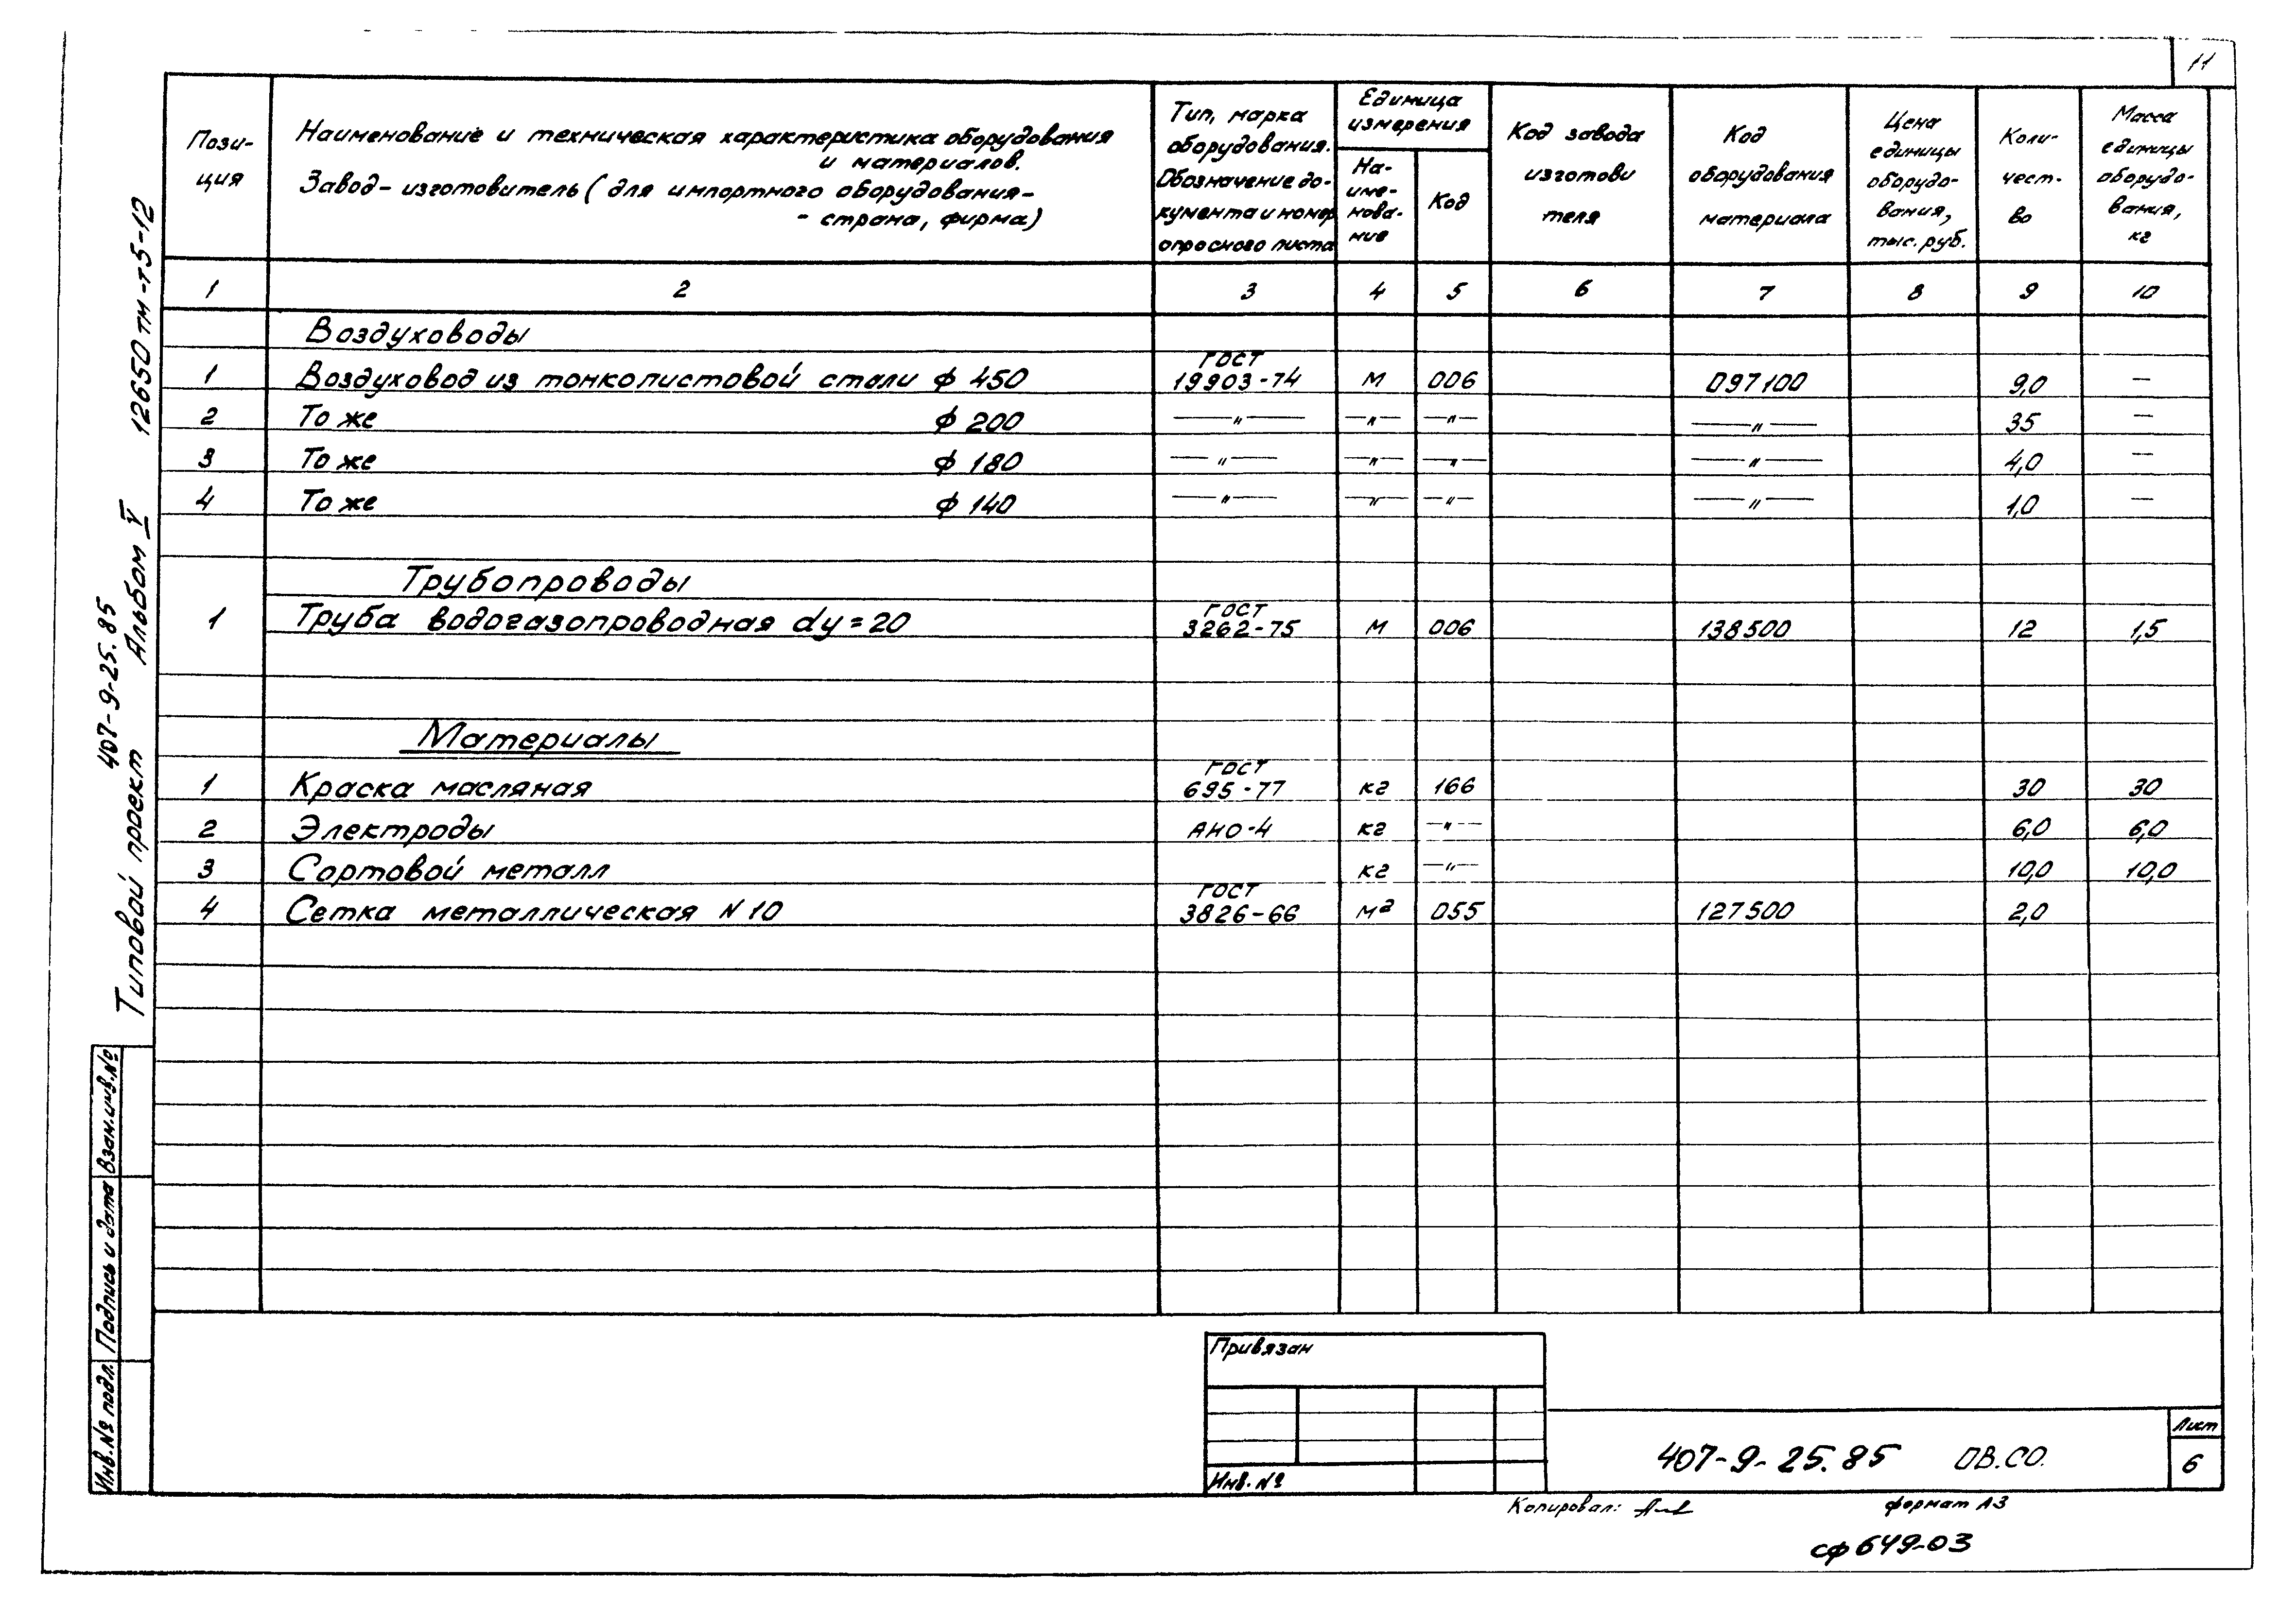 11
Пози-
ция
Наименование и техническая характеристика оборудования
и материалов.
Завод-изготовитель (для импортного оборудования-
- страна, фирма)
Тип, марка
оборудования.
Обозначение до-
кумента и номер
опросного листа
Единица
измерения
На-
име-
нова-
ние
Код
Код завода
изготови
теля
Код
оборудования
материала
Цена
единицы
оборудо-
вания,
тыс. руб.
Коли-
чест-
во
Масса
единицы
оборудо-
вания,
кг
1 2 3 4 5 6 7 8 9 10
Воздуховоды
1 Воздуховод из тонколистовой стали ф 450 ГОСТ 19903-74 м 006 097100 9,0 —
2 То же ф 200 —"— —"— —"— —"— 35 —
3 То же ф 180 —"— —"— —"— —"— 4,0 —
4 То же ф 140 —"— —"— —"— —"— 1,0 —
Трубопроводы
1 Труба водогазопроводная dy=20 ГОСТ 3262-75 м 006 138500 12 1,5
Материалы
1 Краска масляная ГОСТ 695-77 кг 166 30 30
2 Электроды АНО-4 кг —"— 6,0 6,0
3 Сортовой металл кг —"— 10,0 10,0
4 Сетка металлическая N 10 ГОСТ 3826-66 м² 055 127500 2,0
Типовой проект 407-9-25.85 Альбом V 12650тм-т5-12
Взам.инв.№
Подпись и дата
Инв.№ подл.
Привязан
Инв. №
407-9-25.85 ОВ.СО.
Лист
6
Копировал:
формат А3
сф 649-03